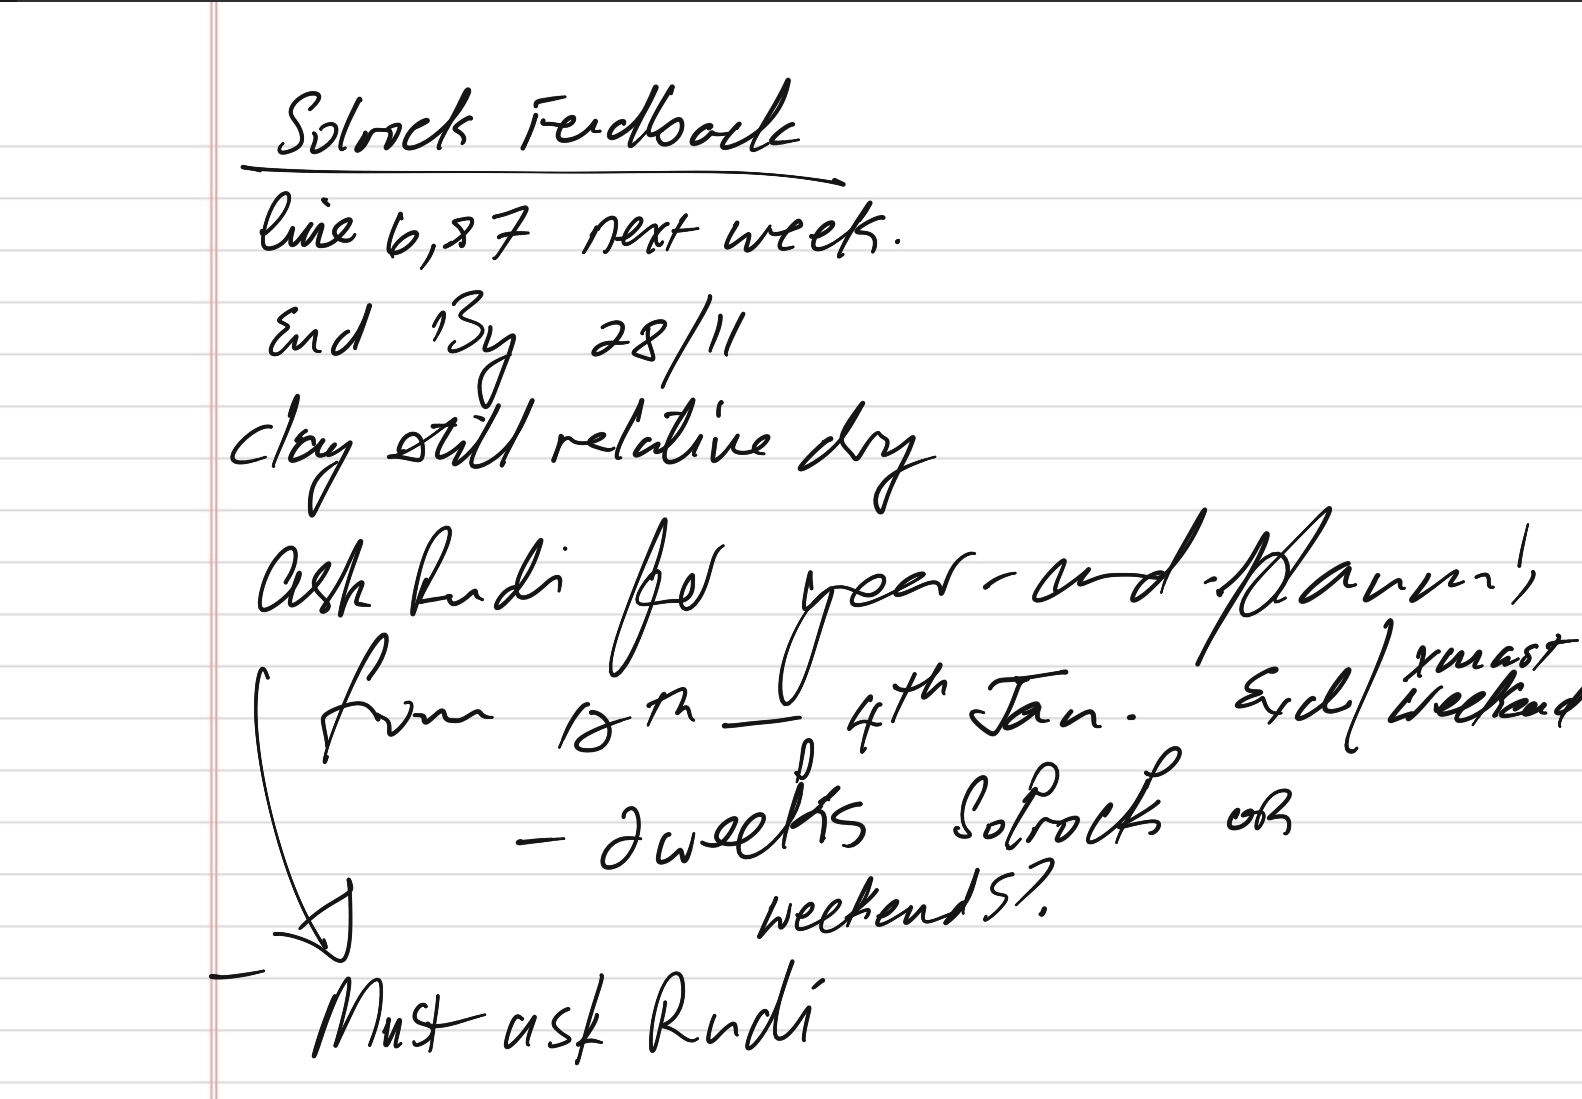 Solrock Feedback
line 6, 87 next week.
End By 28/11
clay still relative dry
ask Rudi for year-end-planni
from 12th — 4th Jan. Excl/ xmast weekend
- 2 weeks Solrock or
weekends?
- Must ask Rudi